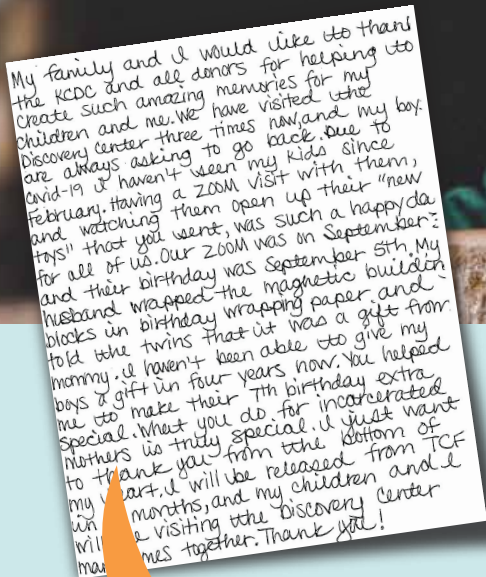 My family and I would like to thank
the KCDC and all donors for helping to
create such amazing memories for my
children and me. We have visited the
Discovery Center three times now, and my boys
are always asking to go back. Due to
Covid-19 I haven't seen my kids since
february. Having a ZOOM visit with them,
and watching them open up their "new
toys" that you sent, was such a happy day
for all of us. Our ZOOM was on September
and their birthday was September 5th. My
husband wrapped the magnetic building
blocks in birthday wrapping paper and
told the twins that it was a gift from
mommy. I haven't been able to give my
boys a gift in four years now. You helped
me to make their 7th birthday extra
special. What you do for incarcerated
mothers is truly special. I just want
to thank you from the bottom of
my heart. I will be released from TCF
in months, and my children and I
will be visiting the Discovery Center
many times together. Thank you!